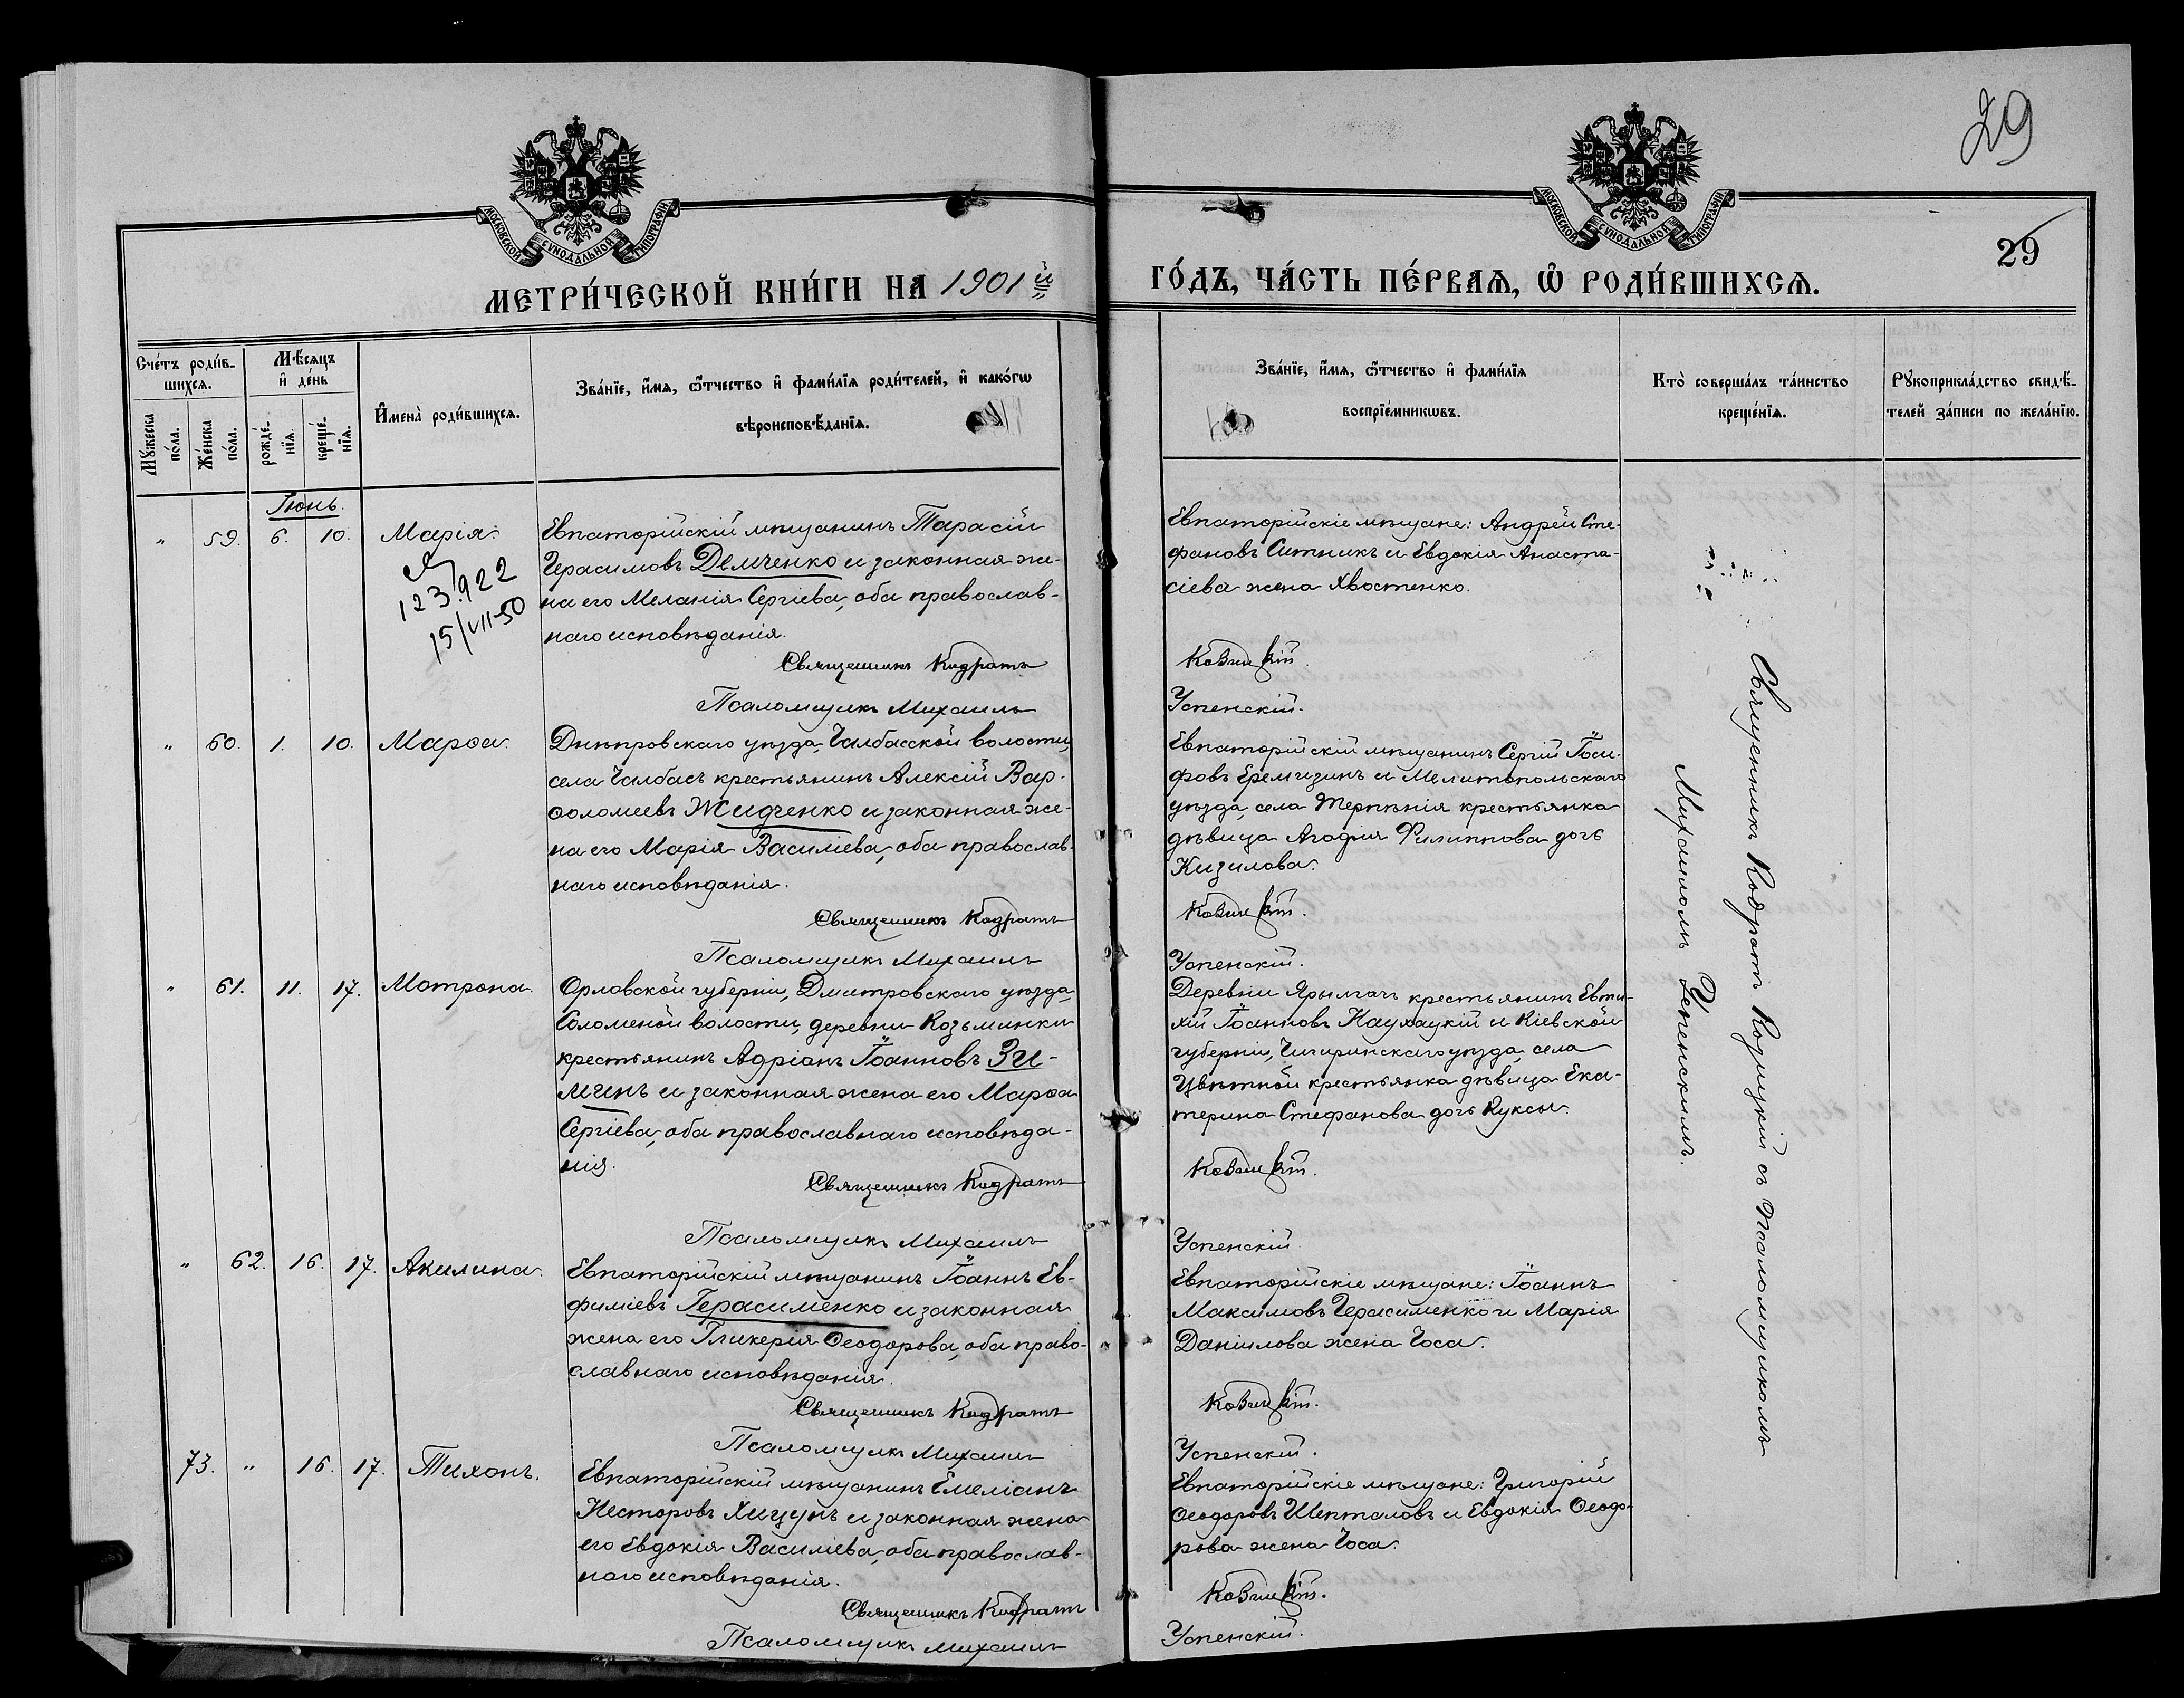 29
МОСКОВСКОЙ СѴНОДАЛЬНОЙ ТИПОГРАФІИ
МОСКОВСКОЙ СѴНОДАЛЬНОЙ ТИПОГРАФІИ
29
МЕТРИ́ЧЕСКОЙ КНИ́ГИ НА 1901й
ГО́ДЪ, ЧА́СТЬ ПЕ́РВАѦ, Ѡ РОДИ́ВШИХСѦ.
Сче́тъ роди́в-
шихсѧ.
Мꙋ́жеска по́ла.
Же́нска по́ла.
Мѣ́сѧцъ
и҆ де́нь
рожде́-
нїѧ.
креще́-
нїѧ.
И҆мена̀ роди́вшихсѧ.
Зва́нїе, и҆́мѧ, ѻ҆́тчество и҆ фами́лїѧ роди́телей, и҆ како́гѡ
вѣроисповѣ́данїѧ.
Зва́нїе, и҆́мѧ, ѻ҆́тчество и҆ фами́лїѧ
воспрїе́мникѡвъ.
Кто̀ соверша́лъ та́инство
креще́нїѧ.
Рꙋкоприкла́дство свидѣ́-
телей за́писи по жела́нїю.
Іюнь.
„ 59. 6. 10. Марія.
123.922
15/VII-50
Евпаторійскій мѣщанинъ Тарасій
Герасимовъ Демченко и законная же-
на его Меланія Сергіева, оба православ-
наго исповѣданія.
Священникъ Кодратъ
Псаломщикъ Михаилъ
Евпаторійскіе мѣщане: Андрей Сте-
фановъ Ситникъ и Евдокія Анаста-
сіева жена Хвостенко.
Козицкій.
Успенскій.
„ 60. 1. 10. Марѳа.
Днѣпровскаго уѣзда, Чалбасской волости,
села Чалбасъ крестьянинъ Алексій Вар-
ѳоломеевъ Жидченко и законная же-
на его Марія Василіева, оба православ-
наго исповѣданія.
Священникъ Кодратъ
Псаломщикъ Михаилъ
Евпаторійскій мѣщанинъ Сергій Іоси-
фовъ Еремизинъ и Мелитопольскаго
уѣзда, села Терпѣнія крестьянка
дѣвица Агафія Филиппова дочь
Кизилова.
Козицкій.
Успенскій.
„ 61. 11. 17. Матрона.
Орловской губерніи, Дмитровскаго уѣзда,
Соломеной волости, деревни Козьминки
крестьянинъ Адріанъ Іоанновъ Зи-
минъ и законная жена его Марѳа
Сергіева, оба православнаго исповѣда-
нія.
Священникъ Кодратъ
Псаломщикъ Михаилъ
Деревни Ярылгачъ крестьянинъ Евти-
хій Іоанновъ Наухацкій и Кіевской
губерніи, Чигиринскаго уѣзда, села
Цвѣтной крестьянка дѣвица Ека-
терина Стефанова дочь Куксы.
Козицкій.
Успенскій.
„ 62. 16. 17. Акилина.
Евпаторійскій мѣщанинъ Іоаннъ Ев-
фиміевъ Герасименко и законная
жена его Гликерія Ѳеодорова, оба право-
славнаго исповѣданія.
Священникъ Кодратъ
Псаломщикъ Михаилъ
Евпаторійскіе мѣщане: Іоаннъ
Максимовъ Герасименко и Марія
Даніилова жена Чоса.
Козицкій.
Успенскій.
73. „ 16. 17. Тихонъ.
Евпаторійскій мѣщанинъ Емеліанъ
Несторовъ Хицунъ и законная жена
его Евдокія Василіева, оба православ-
наго исповѣданія.
Священникъ Кодратъ
Псаломщикъ Михаилъ
Евпаторійскіе мѣщане: Григорій
Ѳеодоровъ Шепталовъ и Евдокія Ѳеодо-
рова жена Чоса.
Козицкій.
Успенскій.
Священникъ Кодратъ Козицкій съ псаломщикомъ
Михаиломъ Успенскимъ.